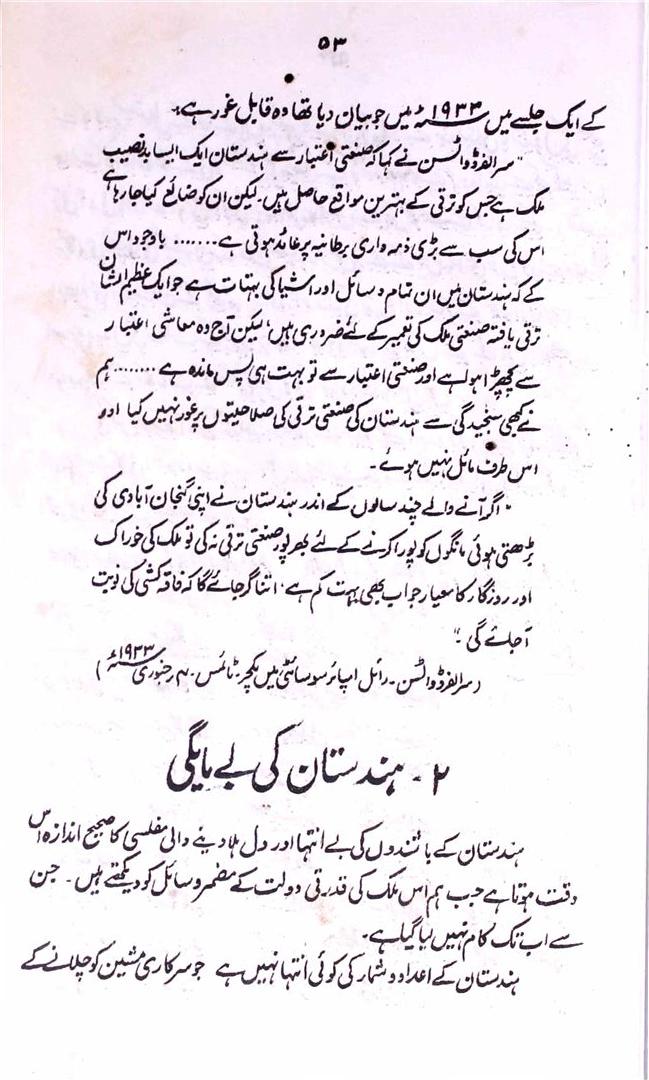 ۵۳
کے ایک جلسے میں ۱۹۳۳ء میں جو بیان دیا تھا وہ قابل غور ہے۔
"سر الفرڈ واٹسن نے کہا کہ صنعتی اعتبار سے ہندستان ایک ایسا بدنصیب
ملک ہے جس کو ترقی کے بہترین مواقع حاصل ہیں۔ لیکن ان کو ضائع کیا جا رہا ہے
اس کی سب سے بڑی ذمہ داری برطانیہ پر عائد ہوتی ہے ....... باوجود اس
کے کہ ہندستان میں ان تمام وسائل اور اشیا کی بہتات ہے جو ایک عظیم الشان
ترقی یافتہ صنعتی ملک کی تعمیر کے لئے ضروری ہیں، لیکن آج وہ معاشی اعتبار
سے پچھڑا ہوا ہے اور صنعتی اعتبار سے تو بہت ہی پس ماندہ ہے ........ ہم
نے کبھی سنجیدگی سے ہندستان کی صنعتی ترقی کی صلاحیتوں پر غور نہیں کیا اور
اس طرف مائل نہیں ہوئے۔
"اگر آنے والے چند سالوں کے اندر ہندستان نے اپنی گنجان آبادی کی
بڑھتی ہوئی مانگوں کو پورا کرنے کے لئے بھرپور صنعتی ترقی نہ کی تو ملک کی خوراک
اور روزگار کا معیار جو اب بھی بہت کم ہے، اتنا گر جائے گا کہ فاقہ کشی کی نوبت
آجائے گی۔"
(سر الفرڈ واٹسن۔ رائل امپائر سوسائٹی میں لکچر۔ ٹائمس۔ ۴ر جنوری ۱۹۳۳ء)
۲ - ہندستان کی بے مایگی
ہندستان کے باشندوں کی بے انتہا اور دل ہلا دینے والی مفلسی کا صحیح اندازہ اس
وقت ہوتا ہے جب ہم اس ملک کی قدرتی دولت کے مضمر وسائل کو دیکھتے ہیں۔ جن
سے اب تک کام نہیں لیا گیا ہے۔
ہندستان کے اعداد و شمار کی کوئی انتہا نہیں ہے جو سرکاری مشین کو چلانے کے